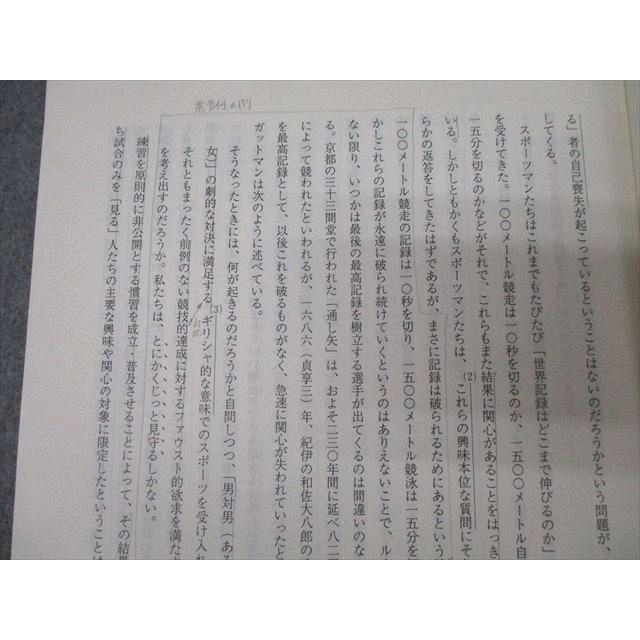 る」者の自己喪失が起こっているということはないのだろうかという問題が、
してくる。
スポーツマンたちはこれまでもたびたび「世界記録はどこまで伸びるのか」
を受けてきた。一〇〇メートル競走は一〇秒を切るのか、一五〇〇メートル自
一五分を切るのかなどがそれで、これらもまた結果に関心があることをはっき
いる。しかしともかくもスポーツマンたちは、(2)これらの興味本位な質問にそ
らかの返答をしてきたはずであるが、まさに記録は破られるためにあるという
一〇〇メートル競走の記録は一〇秒を切り、一五〇〇メートル競泳は一五分を
かしこれらの記録が永遠に破られ続けていくというのはありえないことで、ル
ない限り、いつかは最後の最高記録を樹立する選手が出てくるのは間違いのな
る。京都の三十三間堂で行われた「通し矢」は、およそ二三〇年間に延べ八二
によって競われたといわれるが、一六八六（貞享三）年、紀伊の和佐大八郎の
を最高記録として、以後これを破るものがなく、急速に関心が失われていったと
ガットマンは次のように述べている。
そうなったときには、何が起きるのだろうかと自問しつつ、「男対男（ある
女）」の劇的な対決に満足する、(3)ギリシャ的な意味でのスポーツを受け入れ
それともまったく前例のない競技的達成に対するファウスト的欲求を満た
を考え出すのだろうか。私たちは、とにかくじっと見守るしかない。
練習を原則的に非公開とする慣習を成立・普及させることによって、その結果
ち試合のみを「見る」人たちの主要な興味や関心の対象に限定したということは